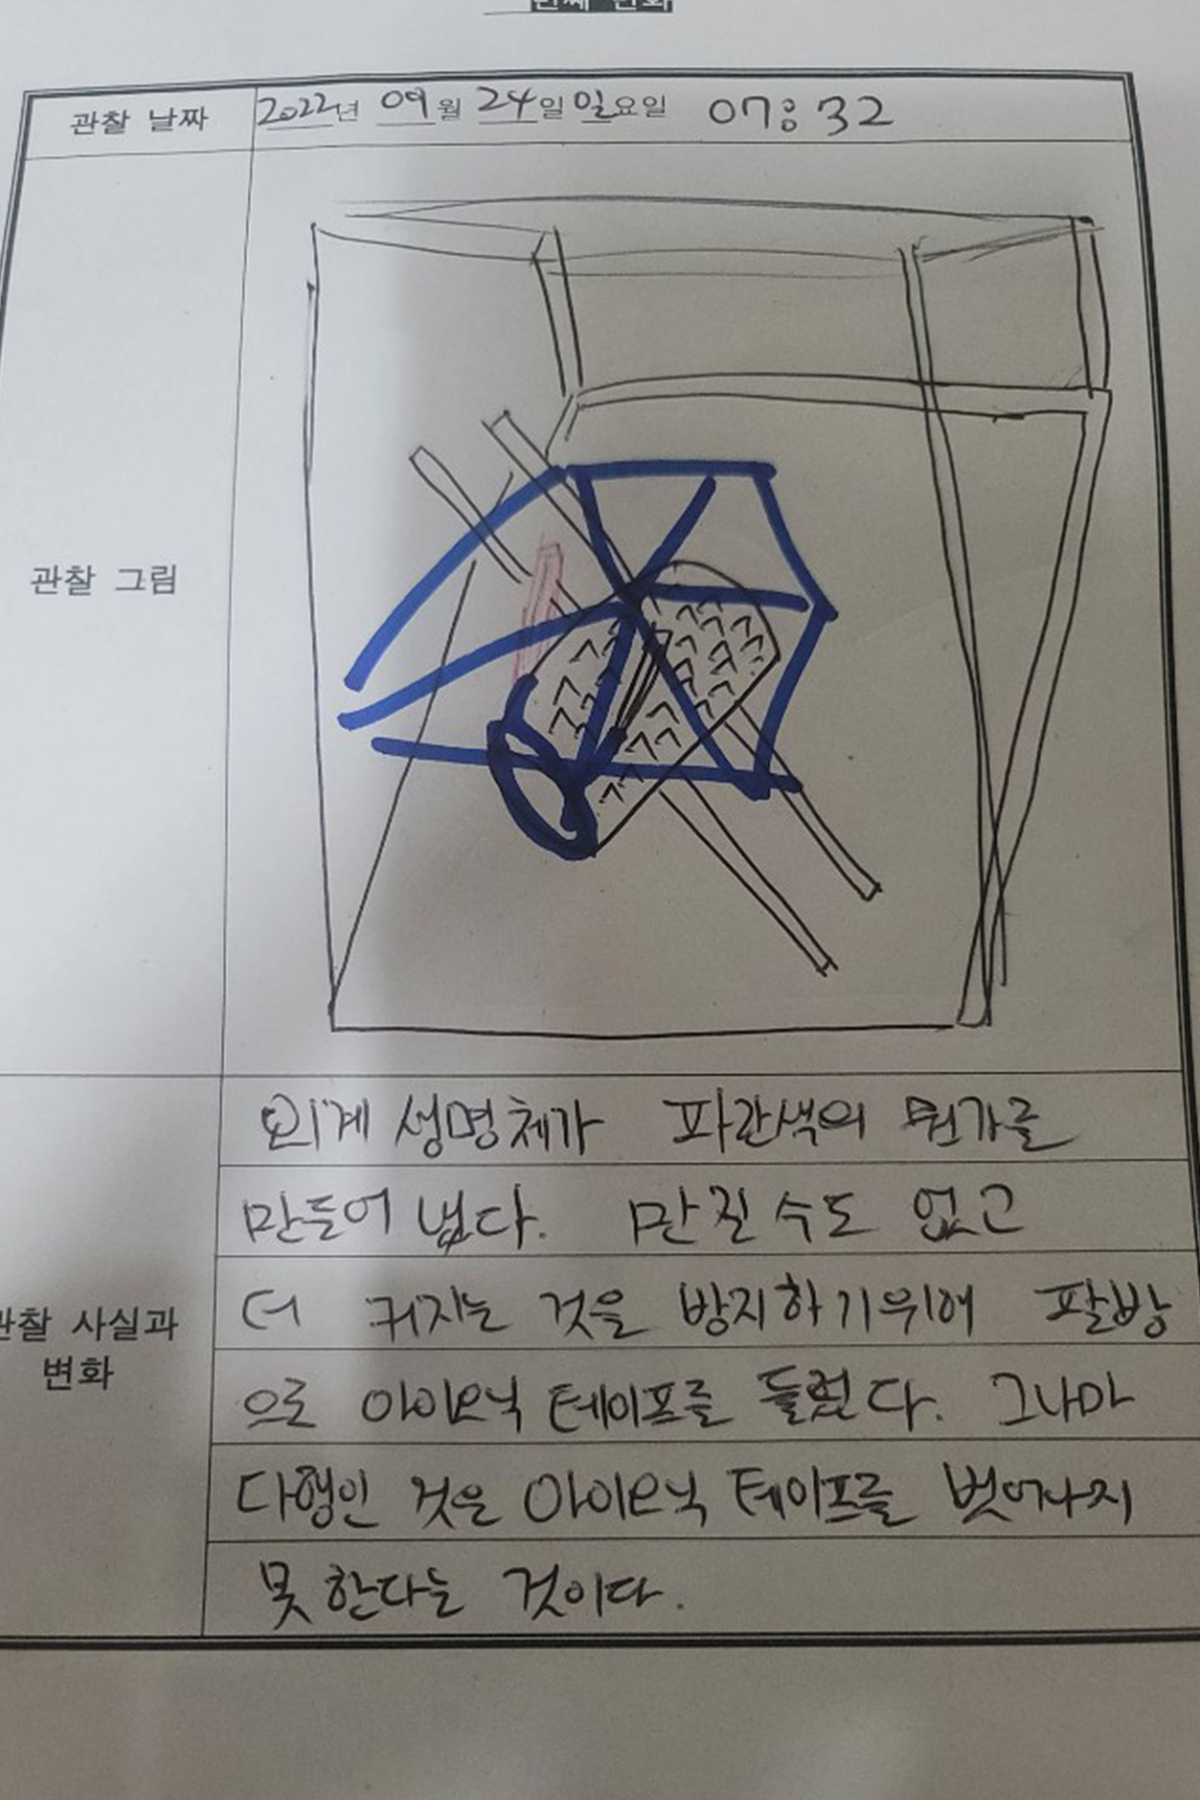 번째 변화
관찰 날짜 2022년 09월 24일 일요일 07:32
관찰 그림
외계 생명체가 파란색의 뭔가를
만들어 냈다. 만질 수도 없고
더 커지는 것을 방지하기위해 팔방
으로 아이오닉 테이프를 둘렀다. 그나마
관찰 사실과
변화
다행인 것은 아이오닉 테이프를 벗어나지
못 한다는 것이다.